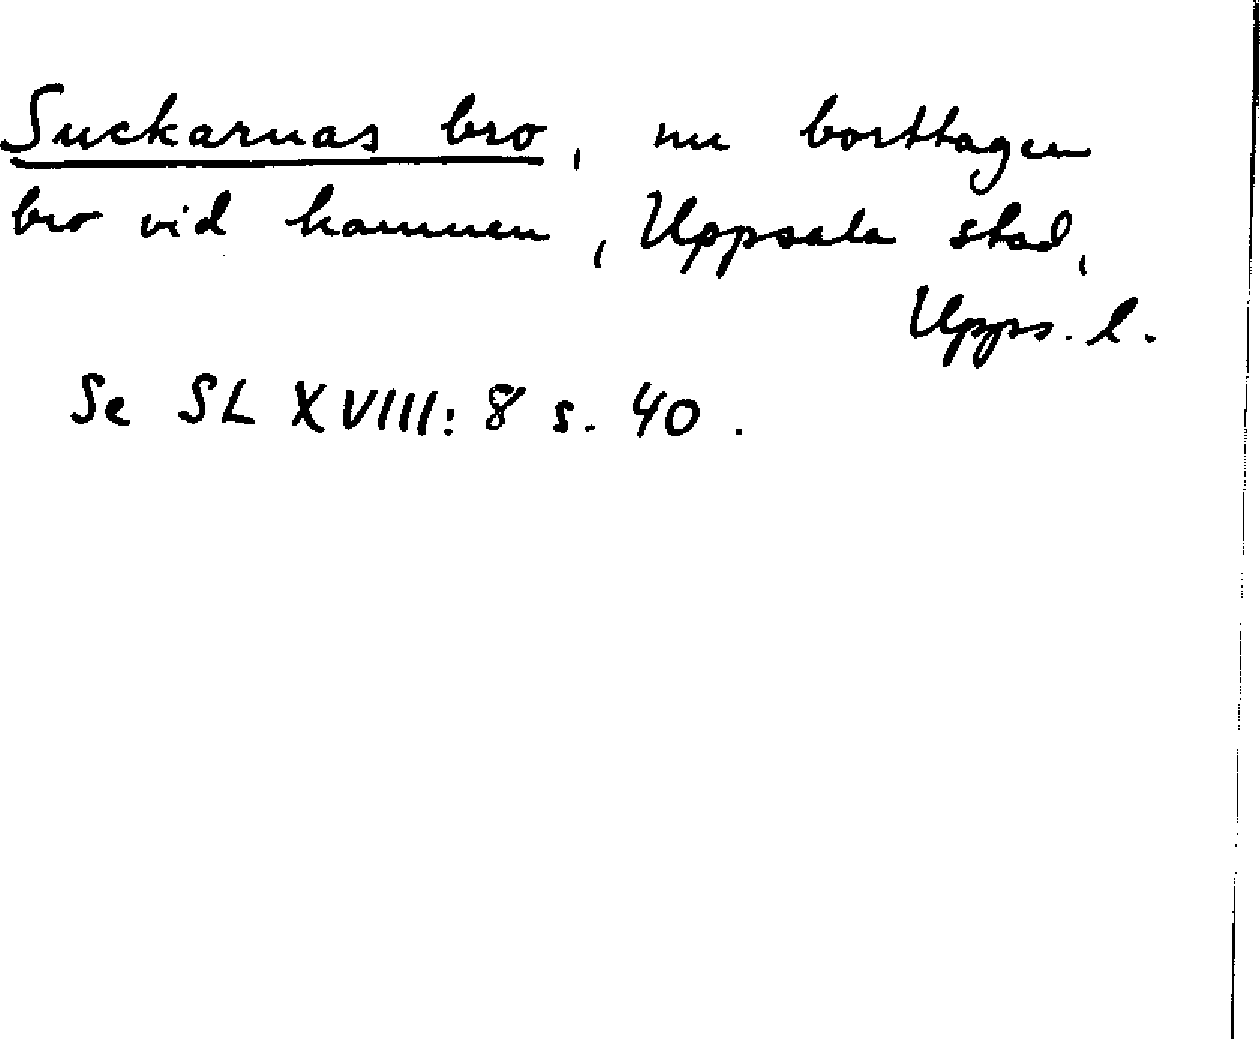 Suckarnas bro, nu borttagen
bro vid hamnen, Uppsala stad,
Upps. l.
Se SL XVIII: 8 s. 40.